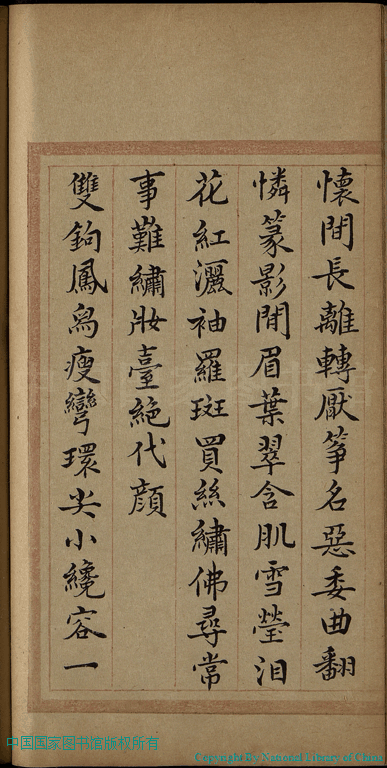 懷間長離轉厭箏名惡委曲翻
憐篆影閒眉葉翠含肌雪瑩泪
花紅灑袖羅斑買絲繡佛尋常
事難繡妝臺絕代顔
雙鉤鳳舄瘦彎環尖小纔容一
中国国家图书馆版权所有
Copyright By National Library of China